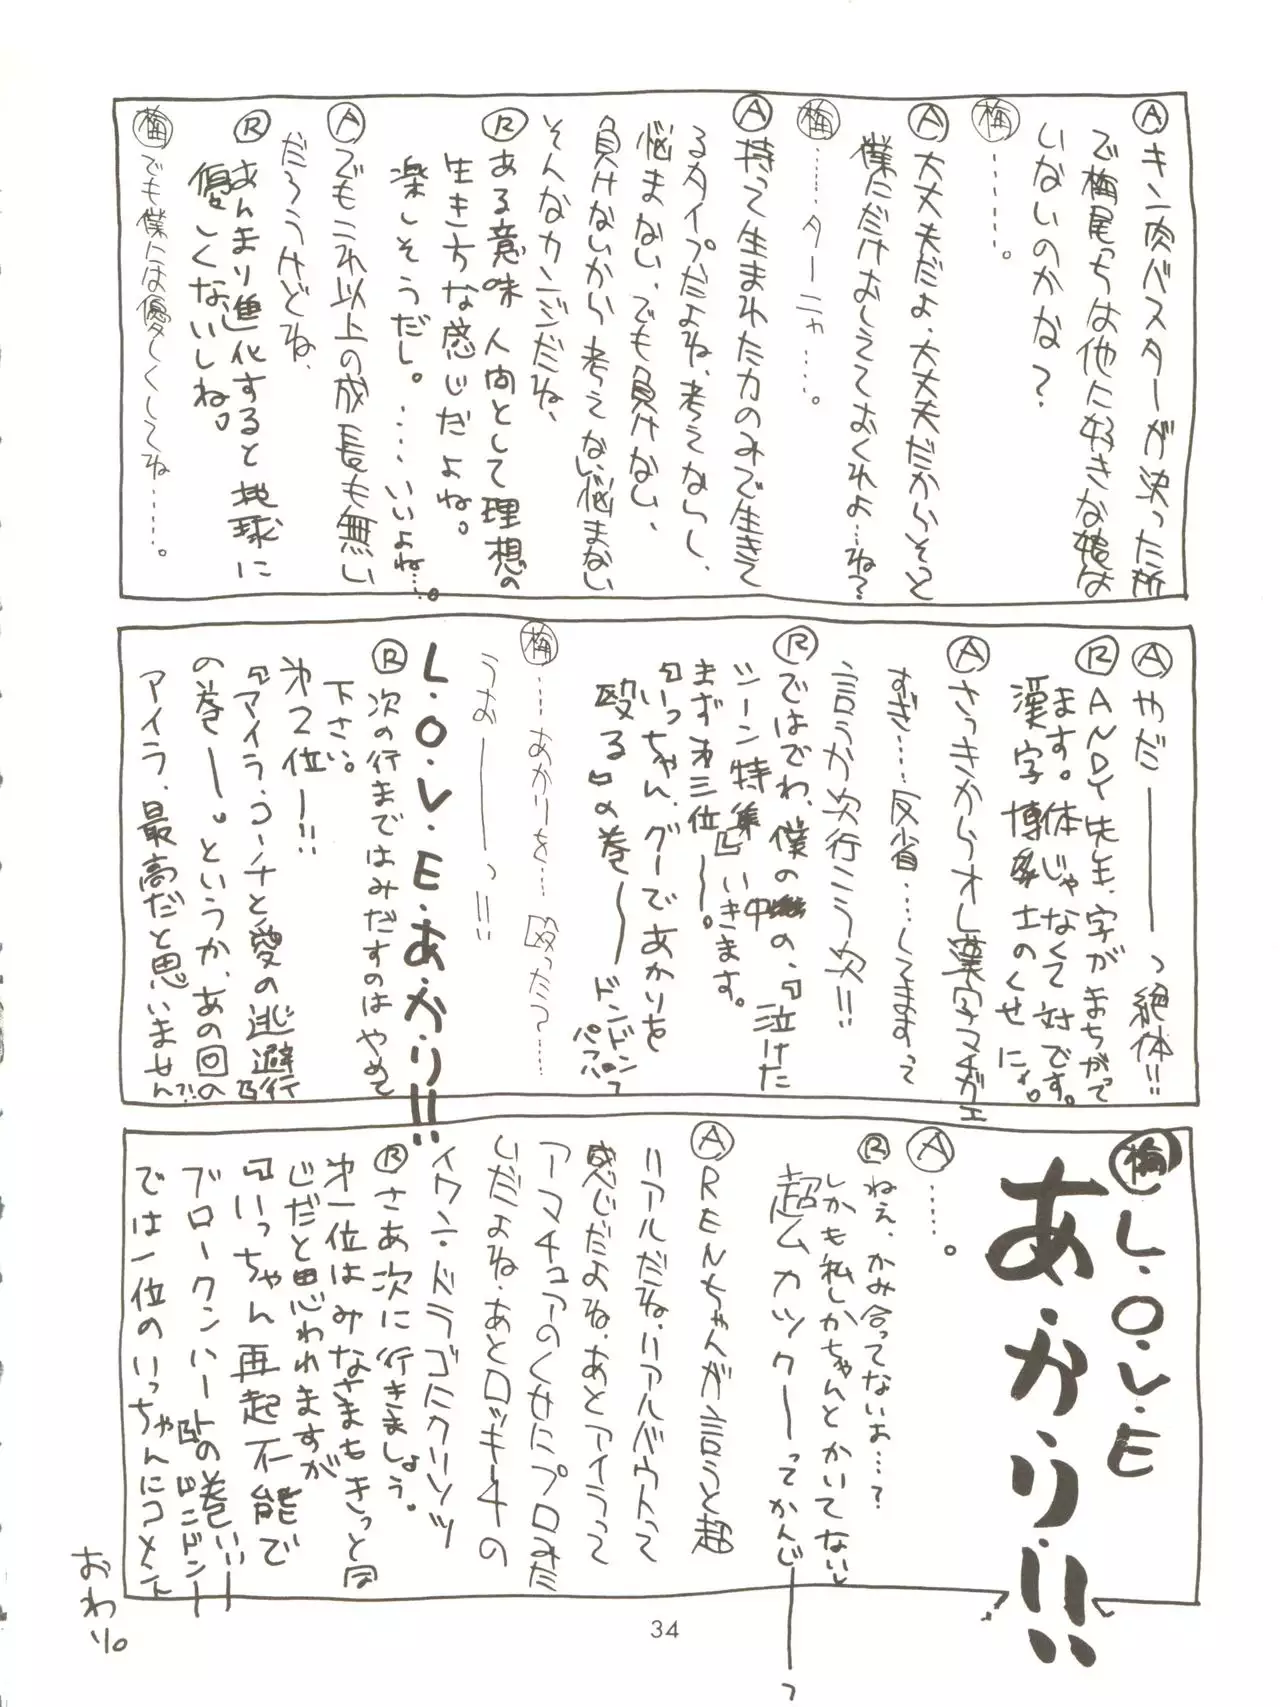 Ⓐキン肉バスターが決った所
で梅尾っちは他に好きな娘は
いないのかな?
㊗梅…………。
Ⓐ大丈夫だよ、大丈夫だからそっと
僕にだけおしえておくれよ…ね?
梅………ターニャ……。
Ⓐ持って生まれた力のみで生きて
るタイプだよね、考えてないし、
悩まない、でも負けない、
負けないから考えない、悩まない
そんなカンジだね、
Ⓡある意味人間として理想の
生き方な感じだよね。
楽しそうだし。……いいよね…。
Ⓐでもこれ以上の成長も無い
だろうけどね、
Ⓡあんまり進化すると地球に
優しくないしね。
梅でも僕には優しくしてね……。
Ⓐやだ――――っ絶体!!
ⓇANDY先生、字がまちがって
ます。体じゃなくて対です。
漢字博士のくせに。
Ⓐさっきからオレ漢字マチガエ
すぎ……反省……してますって
言うか次行こう次!!
Ⓡではでわ、僕の中の、『泣けた
シーン特集』いきます。
まず第三位――。
『いっちゃん、グーであかりを
殴る』の巻――ドンドンっ
パフパフ
梅……あかりを……殴った?……
うお――――っ!!
L・O・V・E・あ・か・り!!
Ⓡ次の行まではみだすのはやめて
下さい。
第2位―!!
『アイラ、コーチと愛の逃避行』
の巻―。というか、あの回の
アイラ、最高だと思いません?!
梅L・O・V・E
あ・か・り!!
Ⓐ……。
Ⓡねえ、かみ合ってないよ…?
しかも私しかちゃんとかいてないし
超ムカツクー―ってかんじ――っ
ⒶRENちゃんが言うと超
リアルだね、リアルバウトって
感じだよね、あとアイラって
アマチュアのくせにプロみた
いだよね、あとロッキー4の
イワン・ドラゴにクリソツ
Ⓡさあ次に行きましょう。
第一位はみなさまもきっと同
じだと思われますが
『いっちゃん再起不能で
ブロークンハート』の巻い!!
ドンドン――
では一位のいっちゃんにコメント
おわり。
34